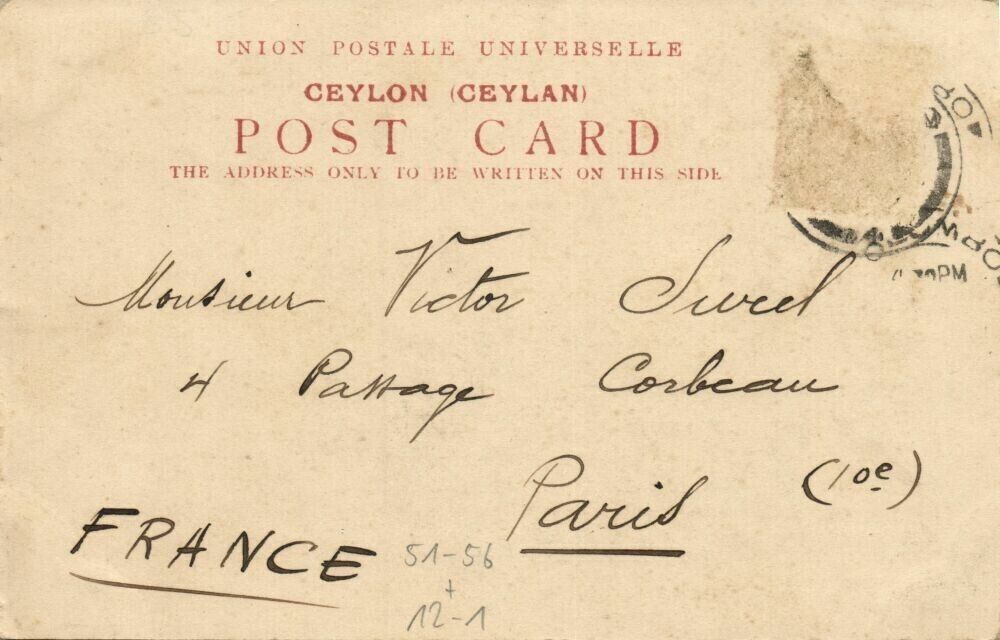 UNION POSTALE UNIVERSELLE
CEYLON (CEYLAN)
POST CARD
THE ADDRESS ONLY TO BE WRITTEN ON THIS SIDE
PM
Monsieur Victor Surel
4 Passage Corbeau
Paris (10e)
FRANCE
51-56
+
12-1